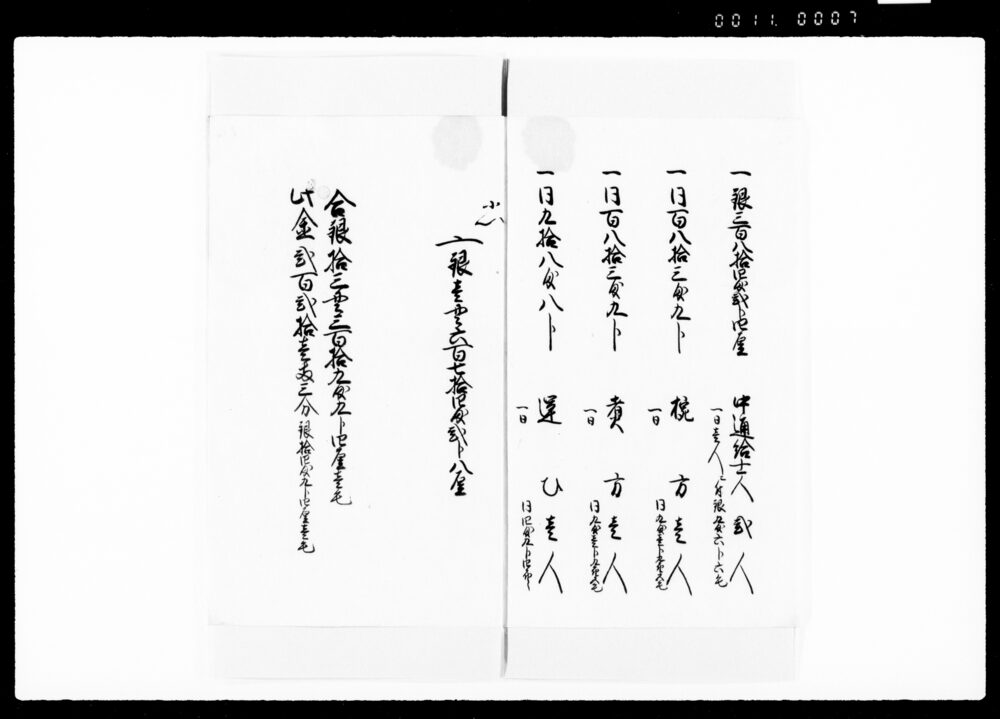 0011.0007
一銀三百八拾四匁弐分四厘 中通給士人弐人
一日壱人ニ付銀九匁六分六毛
一同百八拾三匁九分 椀方壱人
一日 同九匁壱分九厘五毛
一同百八拾三匁九分 煮方壱人
一日 同九匁壱分九厘五毛
一同九拾八匁八分 運ひ壱人
一日 同四匁九分四厘
小以
銀壱貫六百七拾四匁弐分八厘
合銀拾三貫三百拾九匁九分四厘壱毛
此金弐百弐拾壱両三分 銀拾四匁九分四厘壱毛